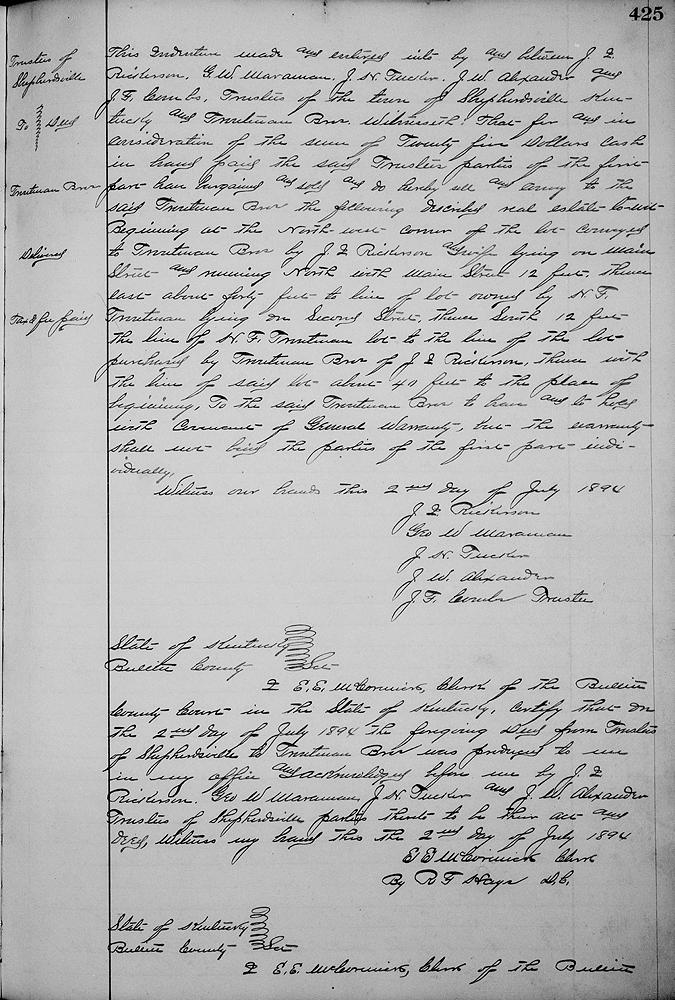 425
Trustees of
Shepherdsville
To Deed
Troutman Bros
Delivered
Tax & fee paid
This Indenture made and entered into by and between J. I.
Rickerson, G. W. Maraman, J. H. Tucker, J. W. Alexander and
J. F. Combs, Trustees of the town of Shepherdsville Ken-
tucky and Troutman Bros. Witnesseth, that for and in
consideration of the sum of Twenty five Dollars cash
in hand paid the said Trustees parties of the first
part have bargained and sold and do hereby sell and convey to the
said Troutman Bros the following described real estate to-wit-
Beginning at the North-west corner of the lot conveyed
to Troutman Bros by J. I. Rickerson & wife lying on Main
Street and running North with Main Street 12 feet, thence
east about forty feet to line of lot owned by H. F.
Troutman lying on Second Street, thence South 12 feet
the line of H. F. Troutman lot to the line of the lot
purchased by Troutman Bros of J. I. Rickerson, thence with
the line of said lot about 40 feet to the place of
beginning, To the said Troutman Bros to have and to hold
with Covenant of General Warranty, but the warranty
shall not bind the parties of the first part indi-
vidually,
Witness our hands this 2nd day of July 1894
J. I. Rickerson
Geo W Maraman
J. H. Tucker
J. W. Alexander
J. F. Combs Trustee
State of Kentucky
Bullitt County Sct
I E. E. McCormick, Clerk of the Bullitt
County Court in the State of Kentucky, Certify that on
the 2nd day of July 1894 the foregoing Deed from Trustees
of Shepherdsville to Troutman Bros was produced to me
in my office and acknowledged before me by J. I.
Rickerson, Geo W Maraman, J. H. Tucker and J. W. Alexander
Trustees of Shepherdsville parties thereto to be their act and
deed, Witness my hand this the 2nd day of July 1894
E E McCormick Clerk
By R F Hays D.C.
State of Kentucky
Bullitt County Sct
I E. E. McCormick, Clerk of the Bullitt